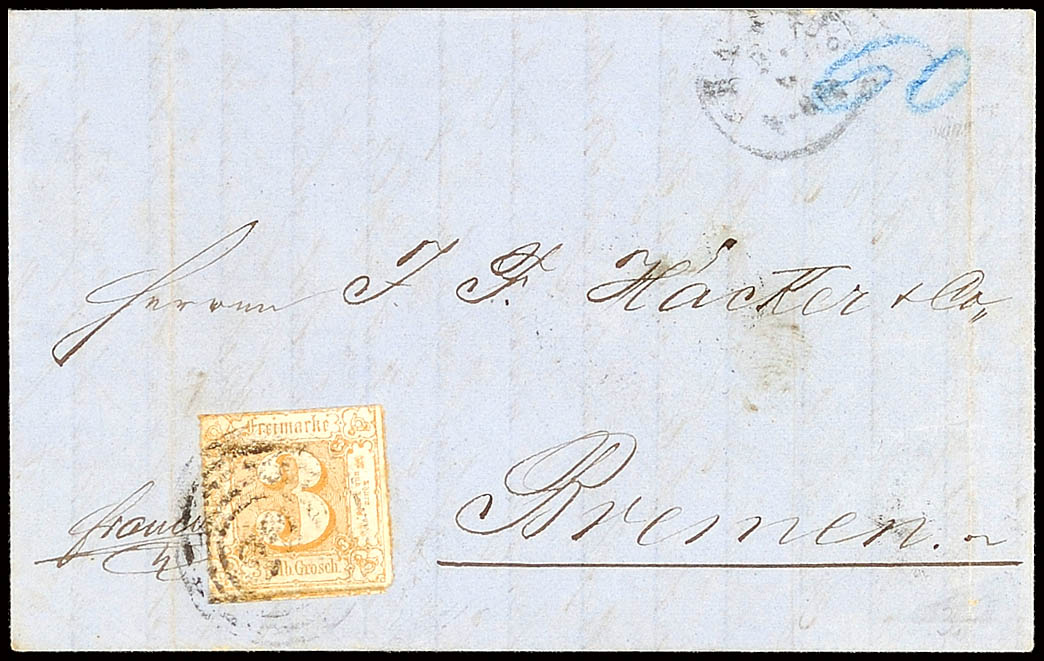 60
Herren J. F. Häcker & Co„
Bremen.
franco
Freimarke
3
Silb. Grosch.